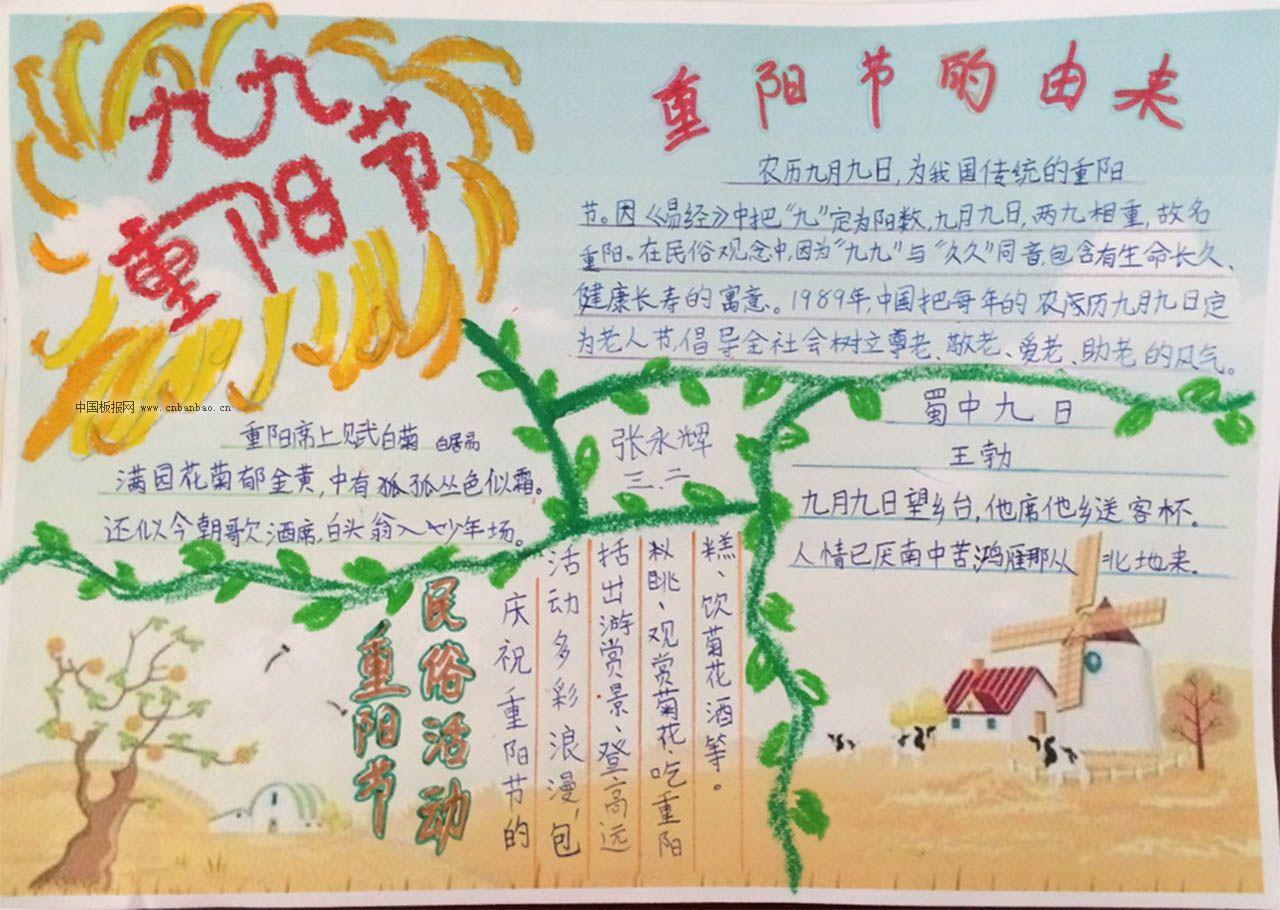 九九
重阳节
重阳节的由来
农历九月九日,为我国传统的重阳
节。因《易经》中把“九”定为阳数,九月九日,两九相重,故名
重阳。在民俗观念中,因为“九九”与“久久”同音,包含有生命长久、
健康长寿的寓意。1989年,中国把每年的农历九月九日定
为老人节,倡导全社会树立尊老、敬老、爱老、助老的风气。
中国板报网 www.cnbanbao.cn
重阳席上赋白菊 白居易
满园花菊郁金黄,中有孤孤丛色似霜。
还似今朝歌酒席,白头翁入少年场。
张永辉
三.二
蜀中九日
王勃
九月九日望乡台,他席他乡送客杯。
人情已厌南中苦,鸿雁那从北地来.
重阳节
民俗活动
庆祝重阳节的
活动多彩浪漫,包
括出游赏景、登高远
眺、观赏菊花、吃重阳
糕、饮菊花酒等。